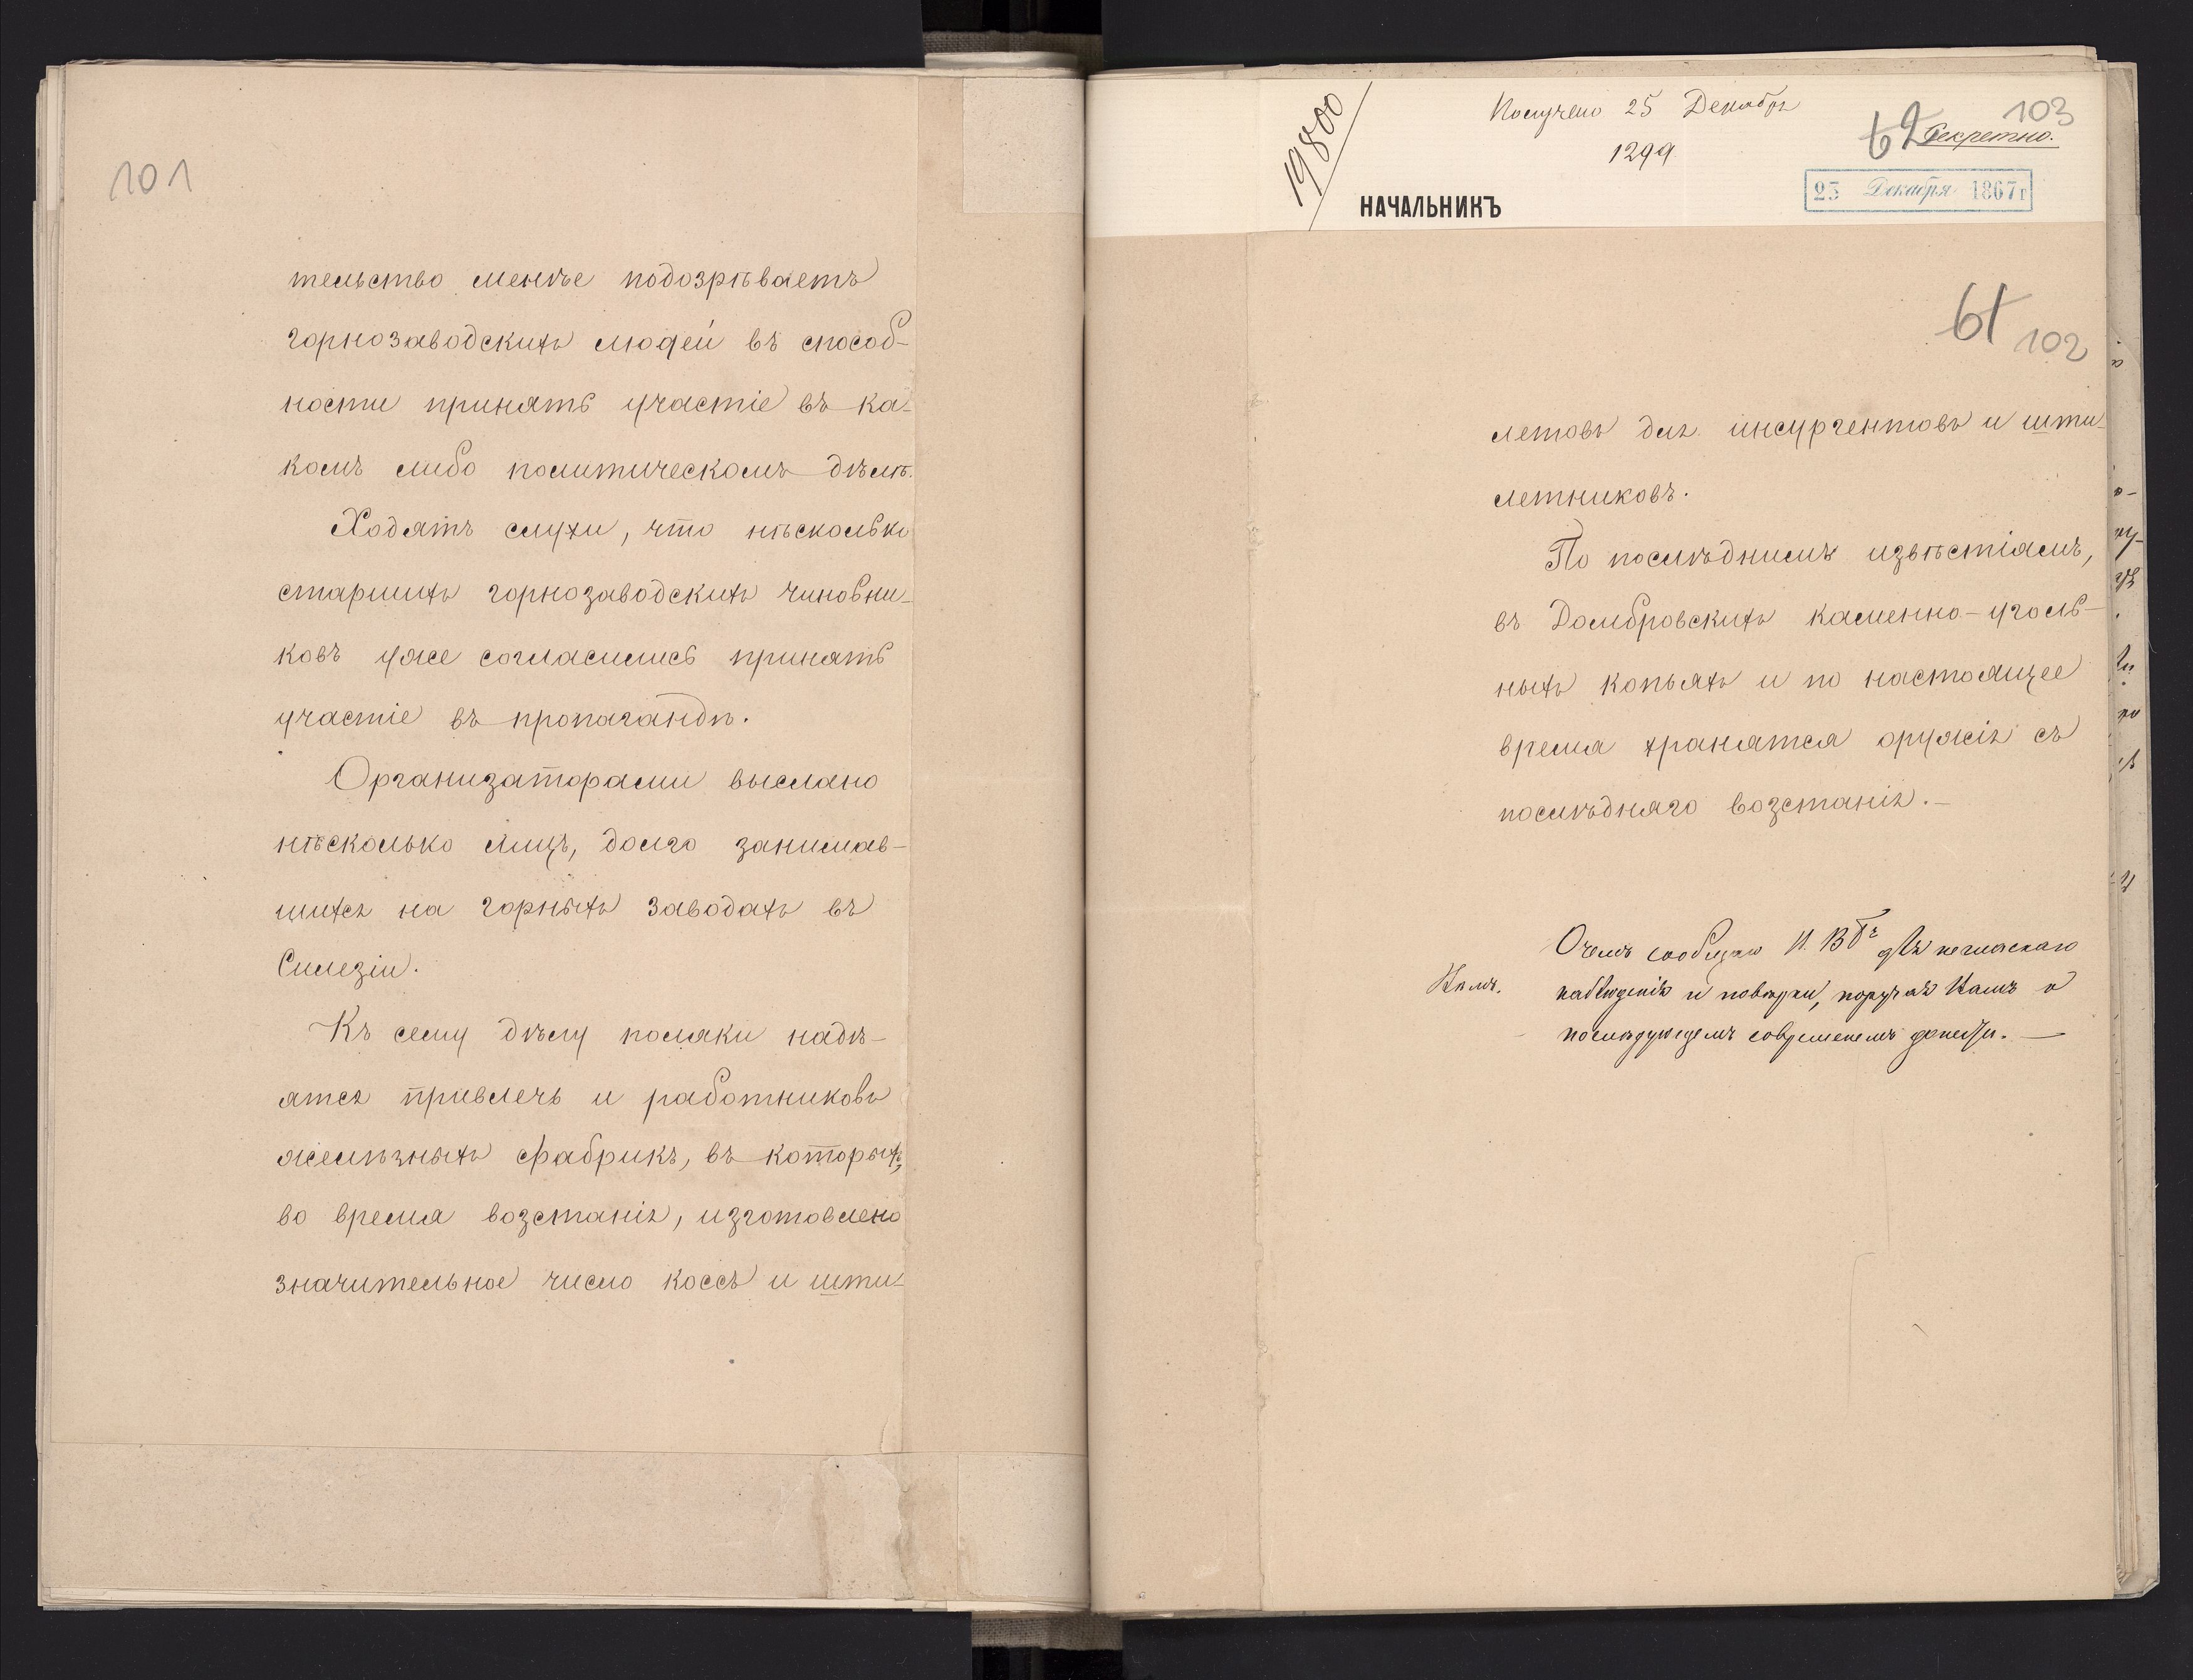 101
тельство менѣе подозрѣваетъ
горнозаводскихъ людей въ способ-
ности принять участіе въ ка-
комъ либо политическомъ дѣлѣ.
Ходятъ слухи, что нѣсколько
старшихъ горнозаводскихъ чиновни-
ковъ уже согласились принять
участіе въ пропагандѣ.
Организаторами выслано
нѣсколько лицъ, долго занимав-
шихся на горныхъ заводахъ въ
Силезіи.
Къ сему дѣлу поляки надѣ-
ятся привлечь и работниковъ
желѣзныхъ фабрикъ, въ которыхъ,
во время возстанія, изготовлено
значительное число коссъ и шти-
19800
Получено 25 Декабря
1299
103
62
Секретно.
23 Декабря 1867 г
НАЧАЛЬНИКЪ
61
102
летовъ для инсургентовъ и шти-
летниковъ.
По послѣднимъ извѣстіямъ,
въ Домбровскихъ каменно-уголь-
ныхъ копьяхъ и по настоящее
время хранятся оружія съ
послѣдняго возстанія.—
О чемъ сообщаю И. ВБ для негласнаго
наблюденія и повѣрки, поручая Вамъ о
послѣдующемъ современемъ донести.—